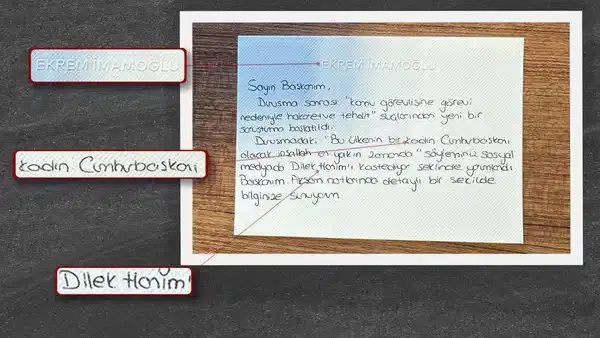 EKREM İMAMOĞLU
EKREM İMAMOĞLU
Sayın Başkanım,
Duruşma sonrası "kamu görevlisine görevi
nedeniyle hakaret ve tehdit" suçlarından yeni bir
soruşturma başlatıldı.
Duruşmadaki "Bu ülkenin bir kadın Cumhurbaşkanı
olacak inşallah en yakın zamanda" söyleminiz sosyal
medyada Dilek Hanım'ı kastediyor şeklinde yorumlandı
Başkanım. Akşam notlarında detaylı bir şekilde
bilginize sunuyorum
kadın Cumhurbaşkanı
Dilek Hanım'